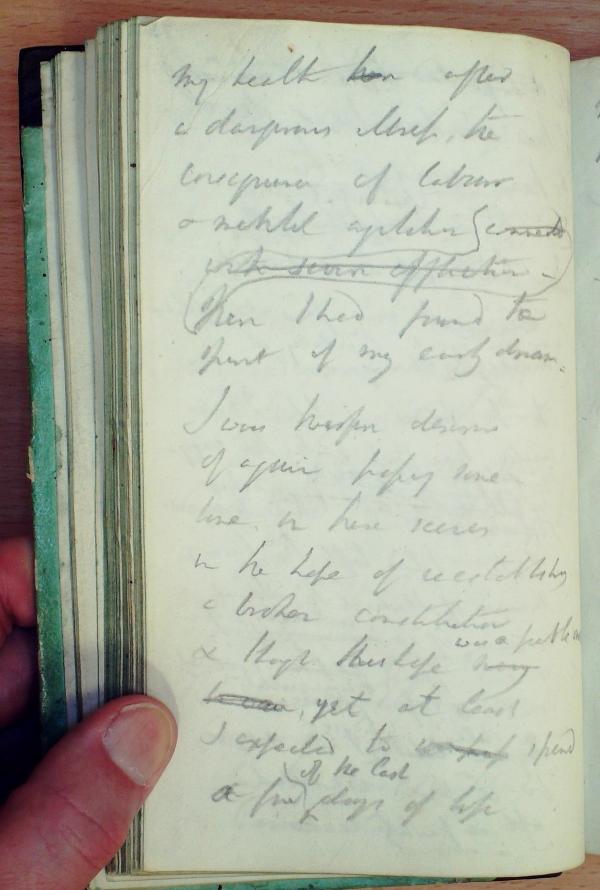 my health after
a dangerous illness, the
consequence of labour
& mental agitation
connected
with severe affliction -
Here I had found the
spirit of my early dream.
I was therefore desirous
of again passing some
time in these scenes
in the hope of reestablishing
a broken constitution
was a feeble one
& though this hope
yet at least
I expected to spend
of the last
a few days of life